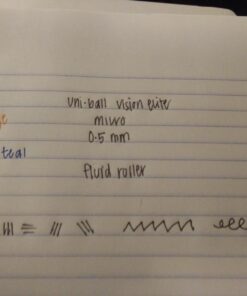 uni-ball vision elite
micro
0.5 mm
teal
fluid roller